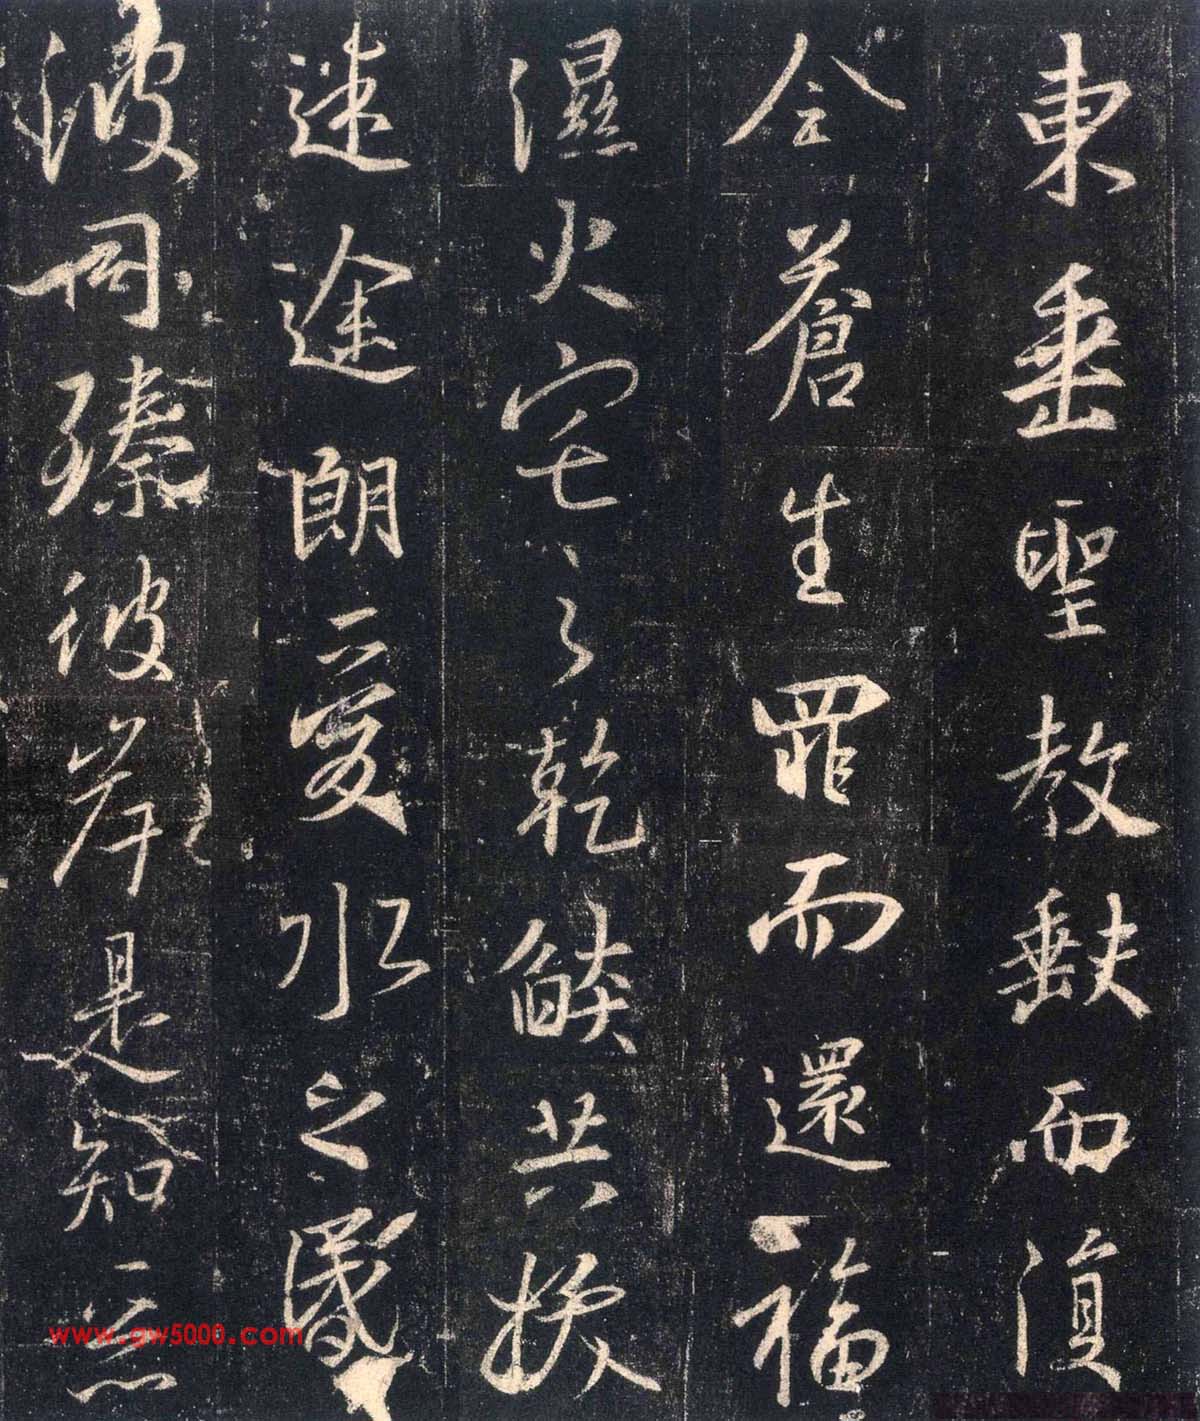 東垂聖教缺而復
全蒼生罪而還福
濕火宅之乾燄共拔
迷途朗愛水之昬
波同臻彼岸是知惡
www.gw5000.com